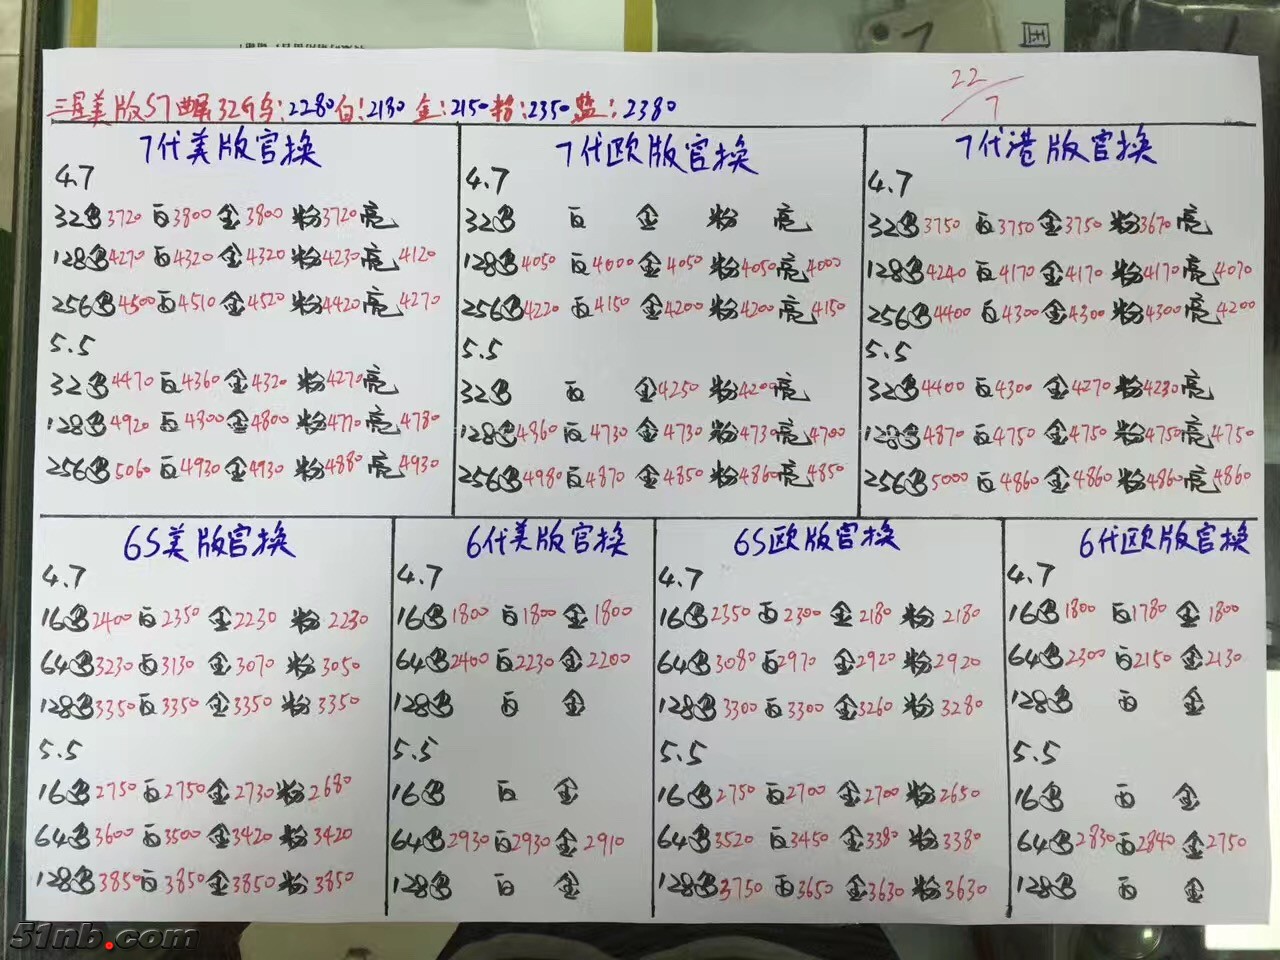 22/7
三星美版S7曲屏32G乌:2280白:2130金:2150粉:2350蓝:2380
7代美版官换
4.7
32乌3720白3800金3800粉3720亮
128乌4270白4320金4320粉4230亮4120
256乌4500白4510金4520粉4420亮4270
5.5
32乌4470白4360金4320粉4270亮
128乌4920白4800金4800粉4770亮4780
256乌5060白4930金4930粉4880亮4930
7代欧版官换
4.7
32乌 白 金 粉 亮
128乌4050白4000金4050粉4050亮4000
256乌4220白4150金4200粉4200亮4150
5.5
32乌 白 金4250粉4200亮
128乌4860白4730金4730粉4730亮4700
256乌4980白4870金4850粉4860亮4850
7代港版官换
4.7
32乌3750白3750金3750粉3670亮
128乌4240白4170金4170粉4170亮4070
256乌4400白4300金4300粉4300亮4200
5.5
32乌4400白4300金4270粉4280亮
128乌4870白4750金4750粉4750亮4750
256乌5000白4860金4860粉4860亮4860
6S美版官换
4.7
16乌2400白2350金2230粉2230
64乌3230白3130金3070粉3050
128乌3350白3350金3350粉3350
5.5
16乌2750白2750金2730粉2680
64乌3600白3500金3420粉3420
128乌3850白3850金3850粉3850
6代美版官换
4.7
16乌1800白1800金1800
64乌2400白2230金2200
128乌 白 金
5.5
16乌 白 金
64乌2930白2930金2910
128乌 白 金
6S欧版官换
4.7
16乌2350白2300金2180粉2180
64乌3080白2970金2920粉2920
128乌3300白3300金3260粉3280
5.5
16乌2750白2700金2700粉2650
64乌3520白3450金3380粉3380
128乌3750白3650金3630粉3630
6代欧版官换
4.7
16乌1800白1780金1800
64乌2300白2150金2130
128乌 白 金
5.5
16乌 白 金
64乌2830白2840金2750
128乌 白 金
51nb.com